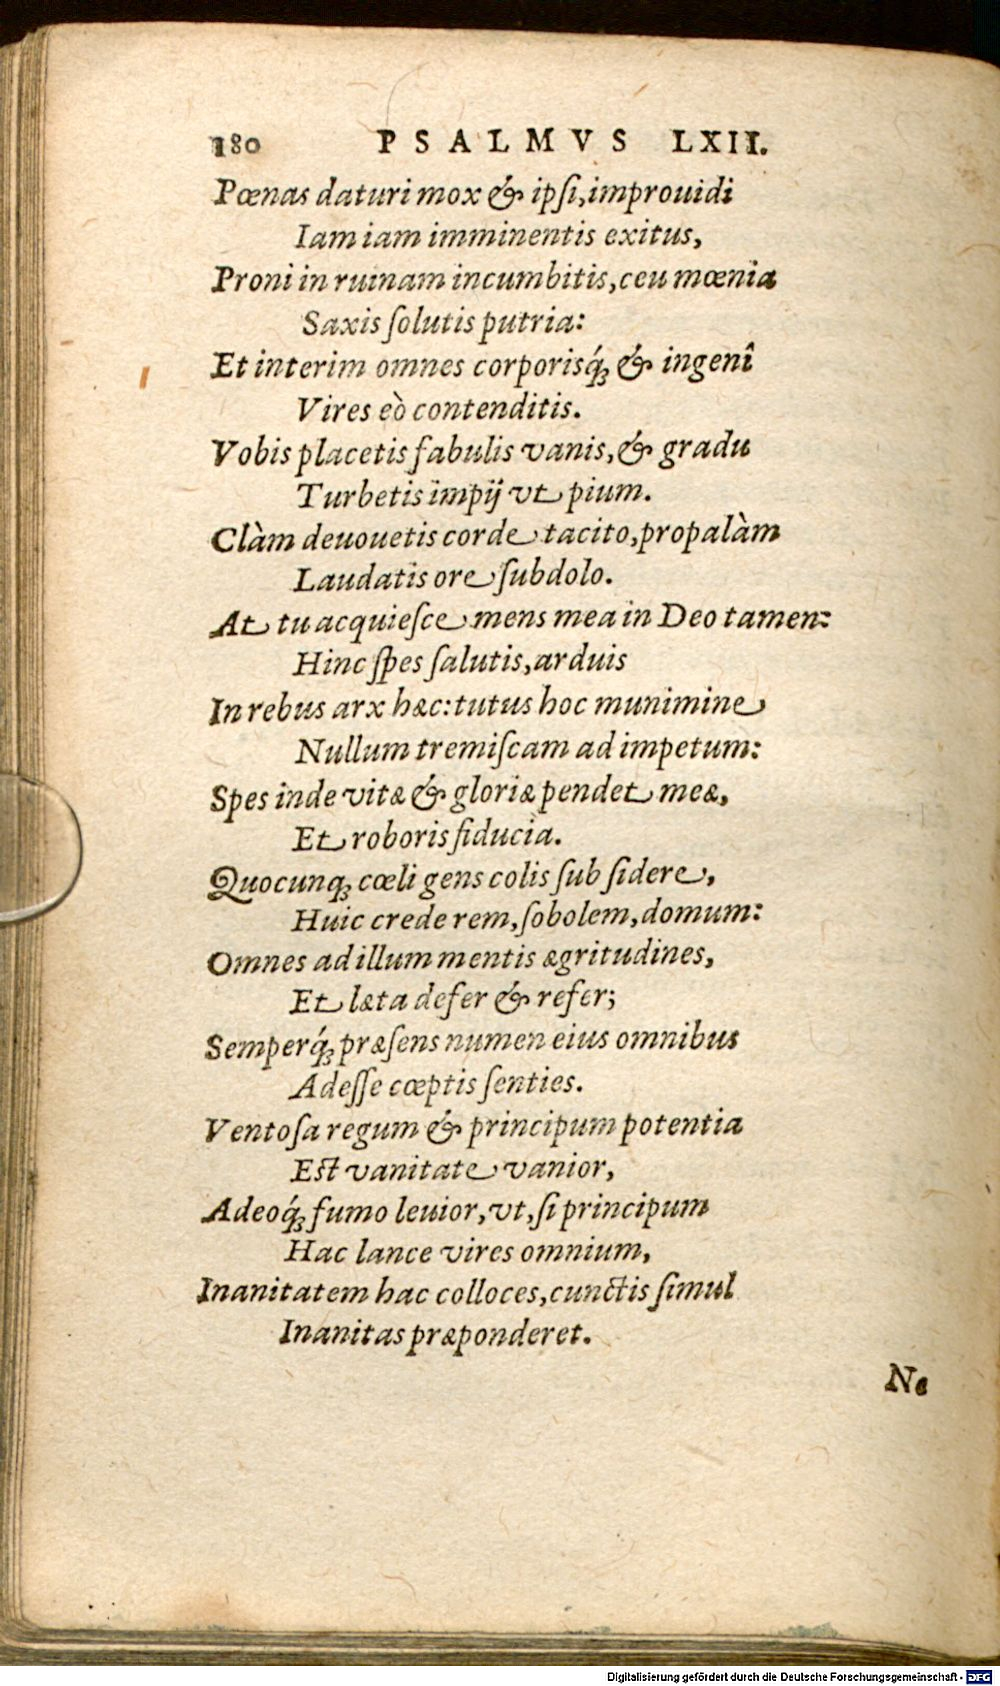 180 PSALMVS LXII.
Pœnas daturi mox & ipſi, improuidi
Iam iam imminentis exitus,
Proni in ruinam incumbitis, ceu mœnia
Saxis ſolutis putria:
Et interim omnes corporisq́; & ingenî
Vires eò contenditis.
Vobis placetis fabulis vanis, & gradu
Turbetis impij vt pium.
Clàm deuouetis corde tacito, propalàm
Laudatis ore ſubdolo.
At tu acquieſce mens mea in Deo tamen:
Hinc ſpes ſalutis, arduis
In rebus arx hæc: tutus hoc munimine
Nullum tremiſcam ad impetum:
Spes inde vitæ & gloriæ pendet meæ,
Et roboris fiducia.
Quocunq; cœli gens colis ſub ſidere,
Huic crede rem, ſobolem, domum:
Omnes ad illum mentis ægritudines,
Et læta defer & refer;
Semperq́; præſens numen eius omnibus
Adeſſe cœptis ſenties.
Ventoſa regum & principum potentia
Eſt vanitate vanior,
Adeoq́; fumo leuior, vt, ſi principum
Hac lance vires omnium,
Inanitatem hac colloces, cunctis ſimul
Inanitas præponderet.
Ne
Digitalisierung gefördert durch die Deutsche Forschungsgemeinschaft - DFG